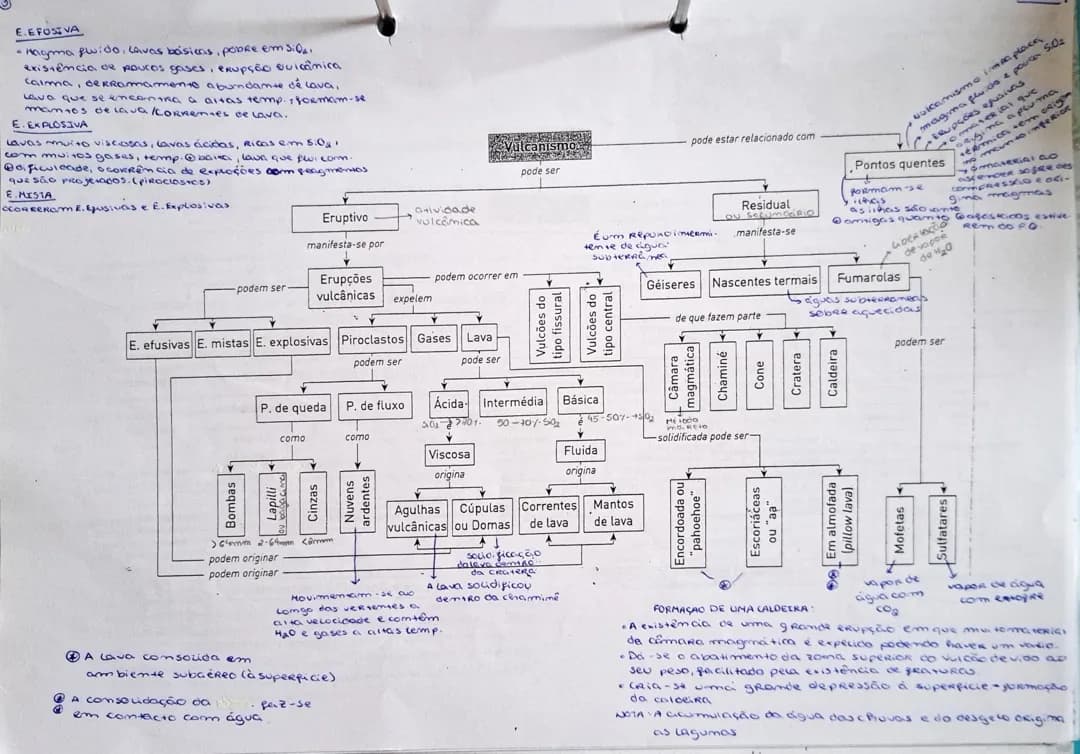 E. EFUSIVA
• Magma fluido, lavas básicas, pobre em SiO2,
existência de poucos gases, erupção vulcânica
calma, derramamento abundante de lava,
lava que se encontra a altas temp., formam-se
mantos de lava / correntes de lava.
E. EXPLOSIVA
Lavas muito viscosas, lavas ácidas, ricas em SiO2,
com muitos gases, temp. baixa, lava que flui com
dificuldade, ocorrência de explosões com fragmentos
que são projetados. (piroclastos)
E. MISTA
ocorrem E. Efusivas e E. Explosivas
Vulcanismo
pode estar relacionado com
Pontos quentes
vulcanismo intraplaca
magma fluido e pouca SiO2
erupções efusivas
o material que
origina a pluma
térmica tem origem
no manto inferior
o material ao
ascender sofre des
compressão e ori-
gina magmas
formam-se
ilhas
as ilhas são tanto
+ antigas quanto + afastadas estive-
rem do P.Q.
pode ser
Eruptivo
atividade
vulcânica
Residual
ou secundário
manifesta-se por
manifesta-se
É um repuxo intermi-
tente de água
subterrânea
Erupções
vulcânicas
podem ser
podem ocorrer em
expelem
Géiseres
Nascentes termais
Fumarolas
libertação
de vapor
de H2O
águas subterrâneas
sobreaquecidas
Vulcões do
tipo fissural
Vulcões do
tipo central
de que fazem parte
podem ser
E. efusivas
E. mistas
E. explosivas
Piroclastos
Gases
Lava
podem ser
pode ser
Câmara
magmática
Chaminé
Cone
Cratera
Caldeira
P. de queda
P. de fluxo
Ácida
Intermédia
Básica
SiO2 >70%
50-70% SiO2
é 45-50% SiO2
solidificada pode ser
como
como
Viscosa
Fluida
origina
origina
Bombas
Lapilli
ou bagacina
Cinzas
Nuvens
ardentes
>64mm 2-64mm <2mm
Agulhas
vulcânicas
Cúpulas
ou Domas
Correntes
de lava
Mantos
de lava
Encordoada ou
"pahoehoe"
Escoriáceas
ou "aa"
Em almofada
(pillow lava)
Mofetas
Sulfatares
podem originar
podem originar
solidificação
da lava dentro
da cratera
A lava solidificou
dentro da chaminé
Movimentam-se ao
longo das vertentes a
alta velocidade e contêm
H2O e gases a altas temp.
vapor de
água com
CO2
vapor de água
com enxofre
FORMAÇÃO DE UMA CALDEIRA:
• A existência de uma grande erupção em que muito material
da câmara magmática é expelido podendo haver um vazio.
• Dá-se o abatimento da zona superior do vulcão devido ao
seu peso, facilitado pela existência de fraturas.
• Cria-se uma grande depressão à superfície - formação
da caldeira
NOTA: A acumulação da água das chuvas e do desgelo origina
as lagunas
* A lava consolida em
ambiente subaéreo (à superfície)
* A consolidação da faz-se
* em contacto com água.